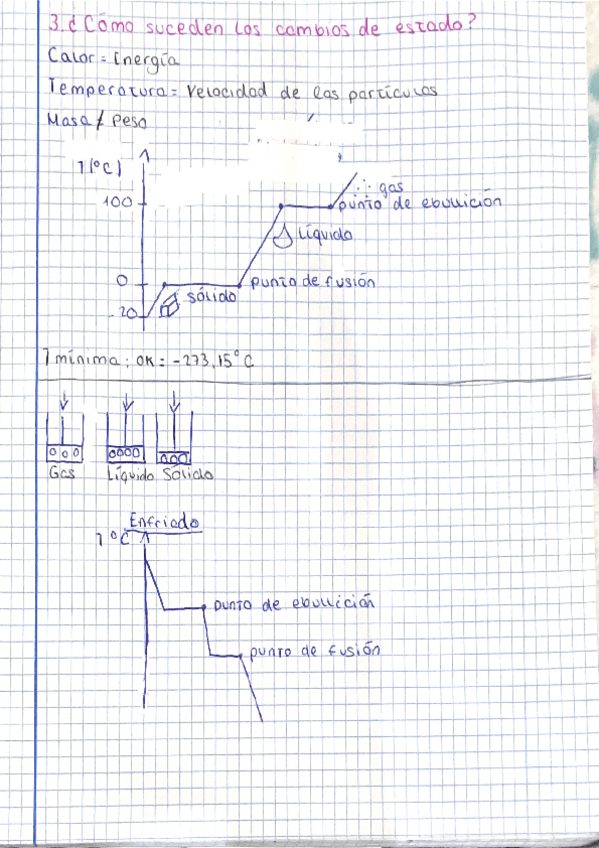 3. ¿Cómo suceden los cambios de estado?
Calor = Energía
Temperatura = Velocidad de las partículas
Masa ≠ Peso
T(°C)
gas
100
punto de ebullición
líquido
0
punto de fusión
sólido
-20
T mínima: 0K = -273,15°C
Gas Líquido Sólido
Enfriado
T°C
punto de ebullición
punto de fusión